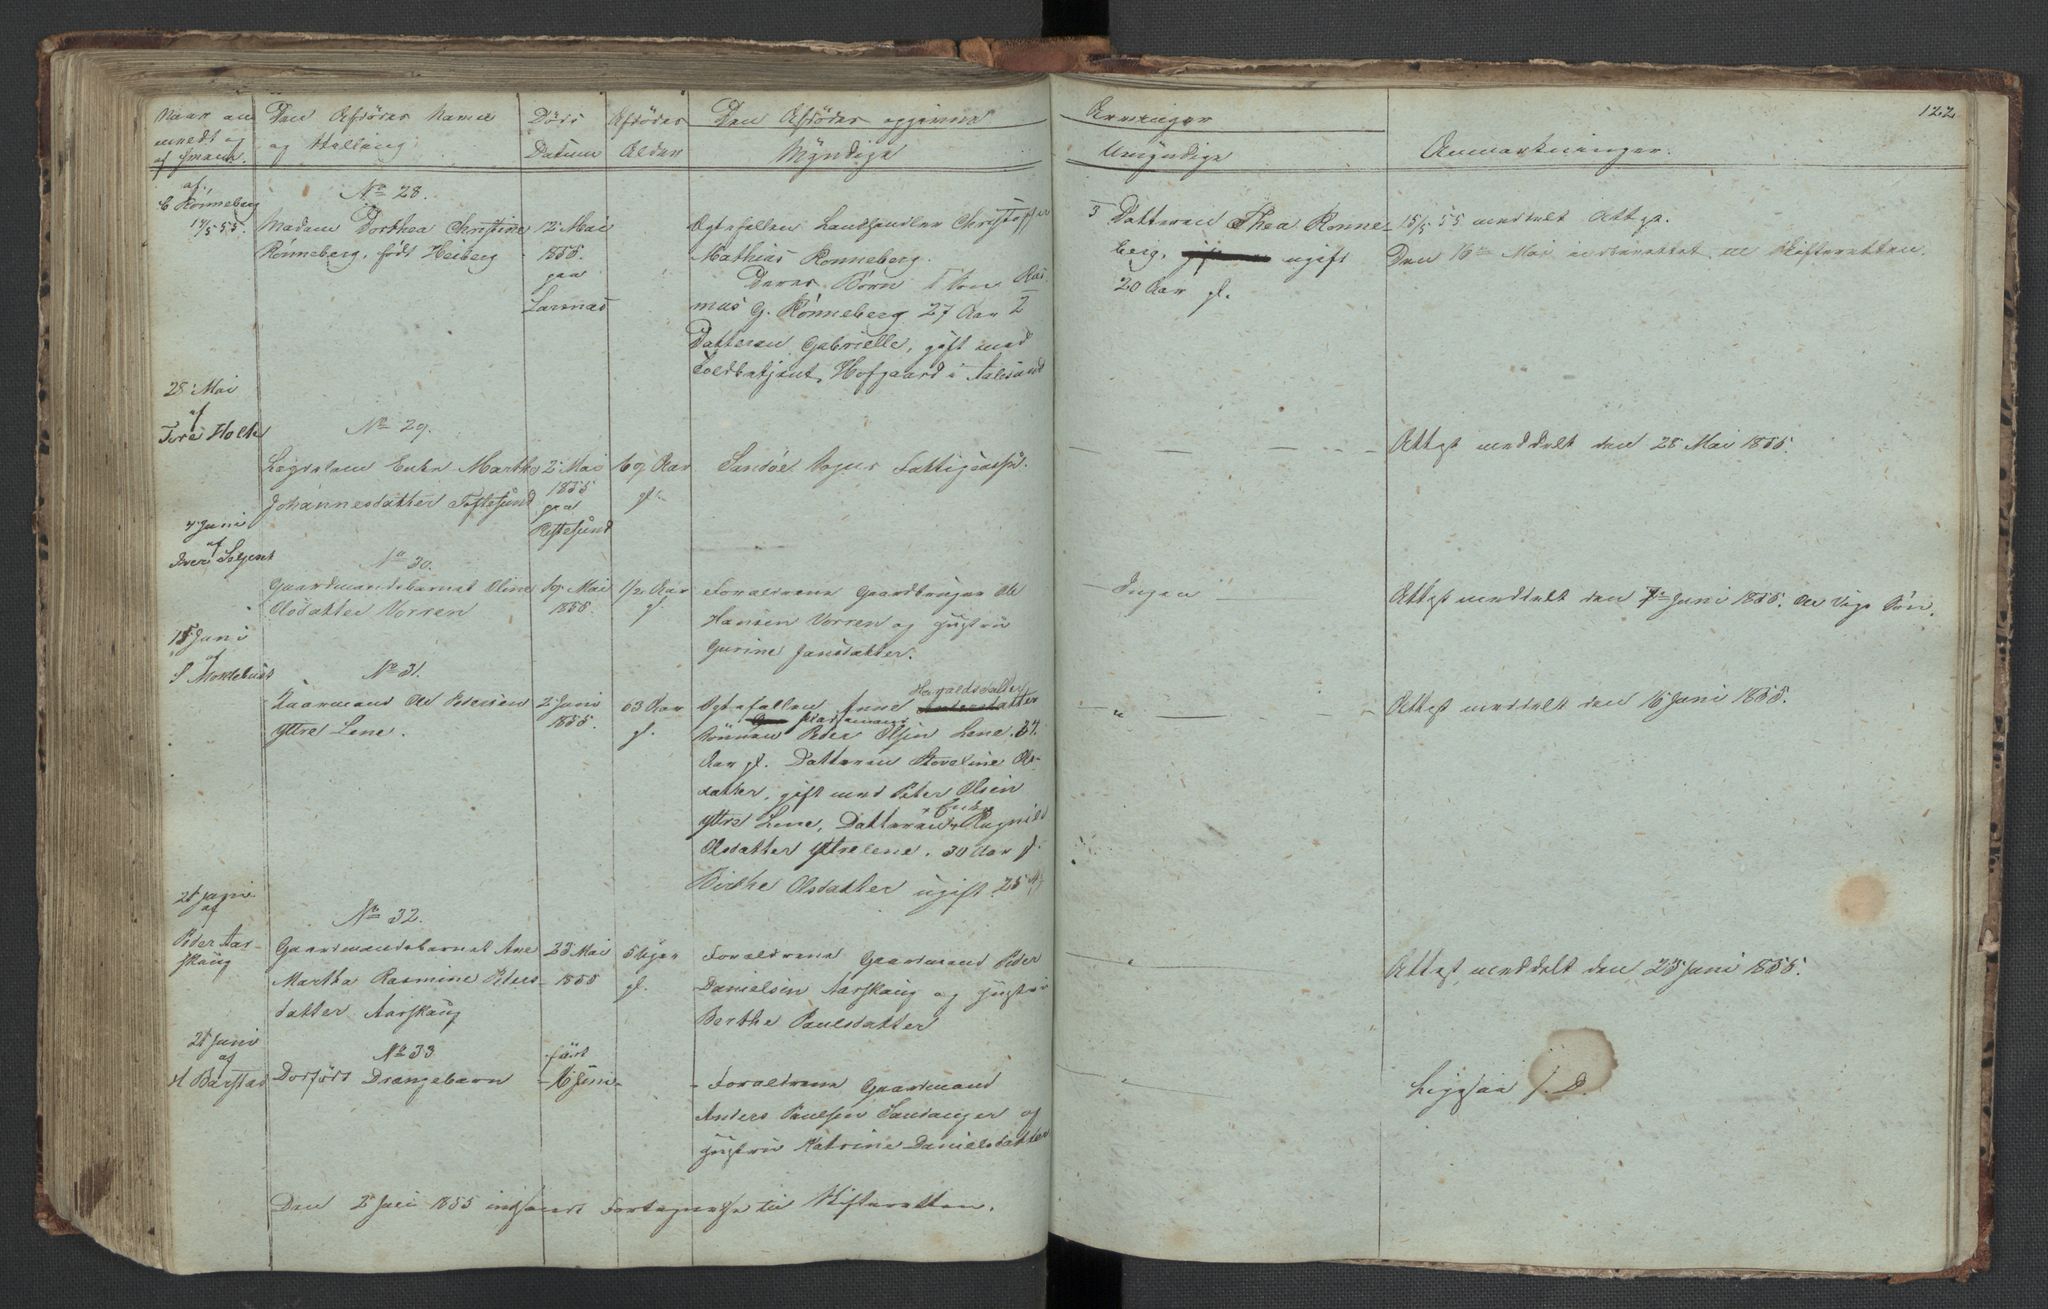 122
Naar an
meldt og
af hvem.
Den Afdödes Navne
og Stilling
Döds
Datum
Afdödes
Alder
Den Afdödes opgivne
Myndige
Arvinger
Umyndige
Anmærkninger.
af
C Rönneberg
14/5 55.
No 28.
Madam Dorthea Christine
Rönneberg, födt Heiberg
12 Mai
1855.
paa
Larsnæs
Ægtefællen Landhandler Christopher
Mathias Rönneberg.
Deres Börn 1 Sön Ras
mus G. Rönneberg 27 Aar 2
Datteren Gabrielle, gift med
Toldbetjent Hofgaard i Aalesund
3 Datteren Thea Rönne
berg, ugift
20 Aar gl.
15/5 55 meddelt Attest.
Den 16de Mai indberettet til Skifteretten.
28 Mai
af
Tore Holte
No 29.
Lægdslem Enke Marthe
Johannesdatter Toftesund
2 Mai
1855
paa
69 Aar
gl.
Sandöe Sogns Fattigcasse.
Attest meddelt den 28 Mai 1855.
4 Juni
af
Iver
No 30.
Gaardmandsbarnet Oline
Olsdatter Vorren
19 Mai
1855.
1/2 Aar
gl.
Forældrene Gaardbruger Ole
Hansen Vorren og Hustru
Gurine Jansdatter.
Ingen
Attest meddelt den 7de Juni 1855.
15 Juni
af
S Moklebust
No 31.
Kaarmand Ole Pedersen
Ytre Lene.
2 Juni
1855.
63 Aar
gl.
Haraldsdatter
Ægtefællen Anne Andersdatter
Gaardmand
Sönnen Peder Olsen Lene. 37.
Aar gl. Datteren Ols-
datter, gift med Peter Olsen
Enke
Ytre Lene, Datteren Ragnild
Olsdatter Ytrelene. 30 Aar gl.
Birthe Olsdatter ugift 25 Aar
"
Attest meddelt den 16 Juni 1855.
21 Juni
af
Peder Aar-
skaug
No 32.
Gaardmandsbarnet Ane
Martha Rasmine Peders-
datter Aarskaug
23 Mai
1855
5 Uger
gl.
Forældrene Gaardmand Peder
Danielsen Aarskaug og Hustru
Berthe Paulsdatter
"
Attest meddelt den 25 Juni 1855.
21 Juni
af
H Barstad
No 33
Dödfödt Drengebarn
födt
16 Juni
Forældrene Gaardmand
Anders Paulsen Sandanger og
Hustru Katrine Danielsdatter
"
Ligesaa s. D.
Den 2 Juli 1855 indsendt Fortegnelse til Skifteretten.